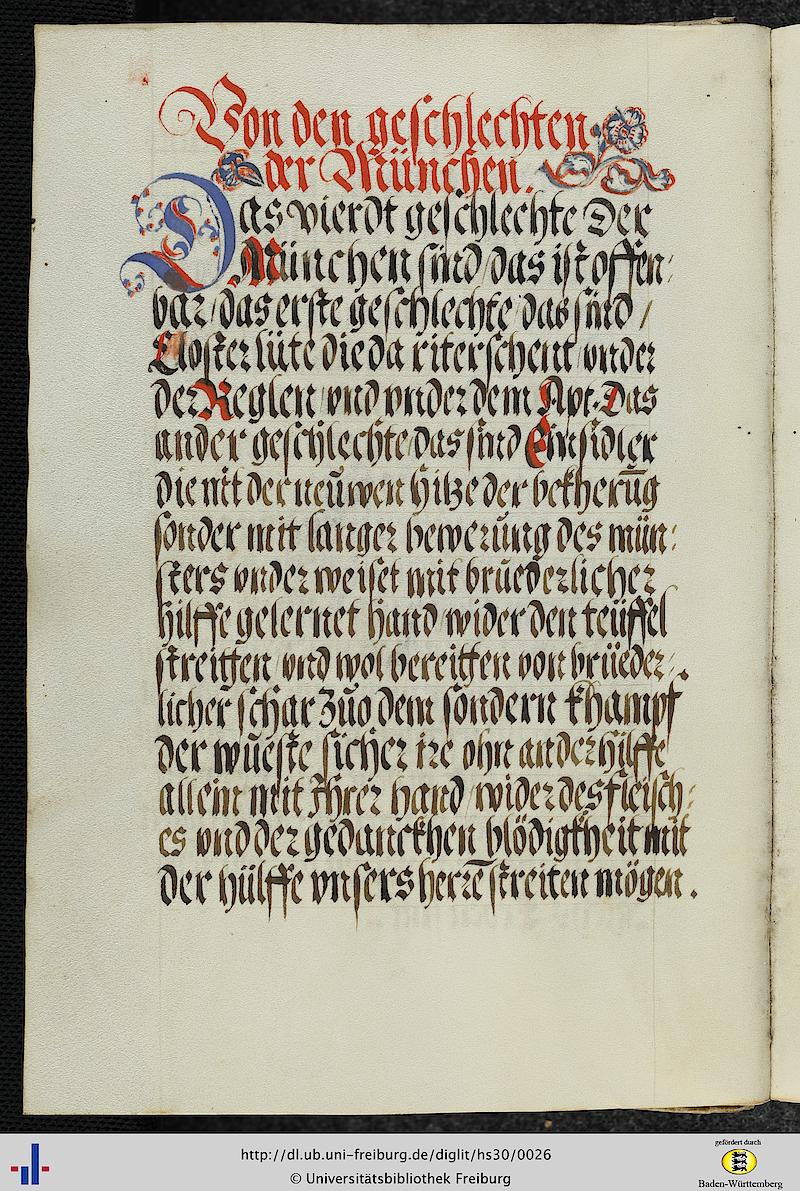 Von den geschlechten
der München.
Das vierdt geschlechte Der
München sind / das ist offen⸗
bar / das erste geschlechte / das sind /
Closter lüte die da riterschent / vnder
der Reglen / vnd vnder dem Apt. Das
ander geschlechte / das sind Einsidler
die nit der neüwen hitze der bekherūg
sonder mit langer bewerung des mün⸗
sters vnderweiset mit brüederlicher
hilffe gelernet hand / wider den teüffel
streitten / vnd wol bereitten von brüeder⸗
licher schar Zůo dem sondern khampf
der wüeste sicher ire ohn ander hilffe
allein mit Ihrer hand / wider des fleisch⸗
es vnd der gedanckhen blödigkheit mit
der hülffe vnsers herrē streiten mögen .
http://dl.ub.uni-freiburg.de/diglit/hs30/0026
© Universitätsbibliothek Freiburg
gefördert durch
Baden-Württemberg